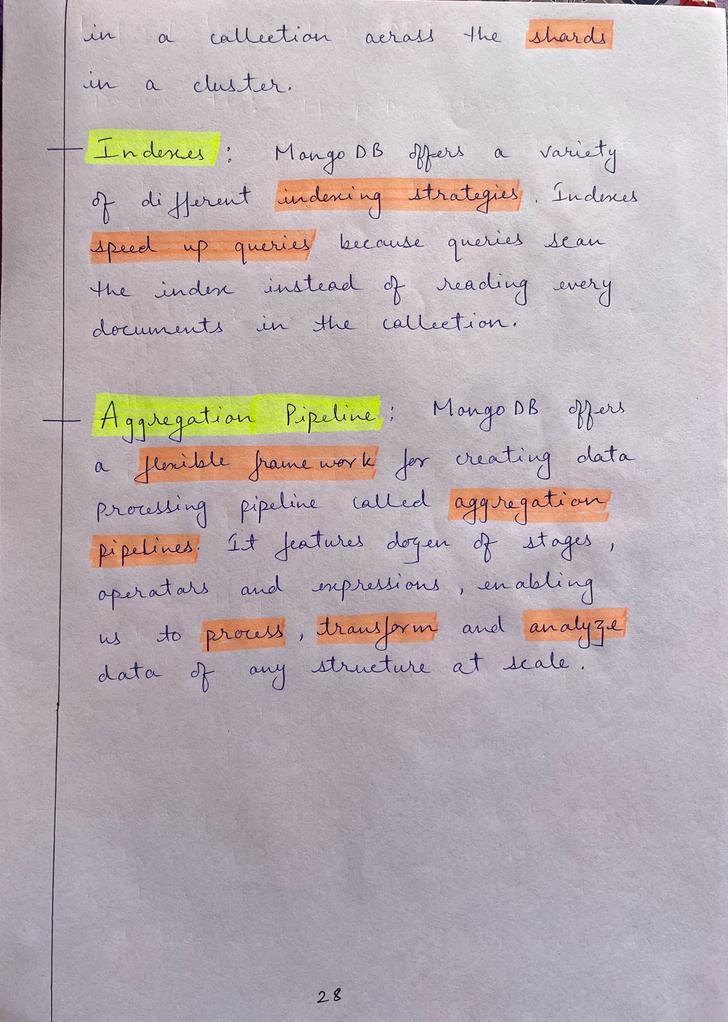 in a collection across the shards
in a cluster.
Indexes : MongoDB offers a variety
of different indexing strategies. Indexes
speed up queries because queries scan
the index instead of reading every
documents in the collection.
Aggregation Pipeline : MongoDB offers
a flexible framework for creating data
processing pipeline called aggregation
pipelines. It features dozen of stages,
operators and expressions, enabling
us to process, transform and analyze
data of any structure at scale.
28